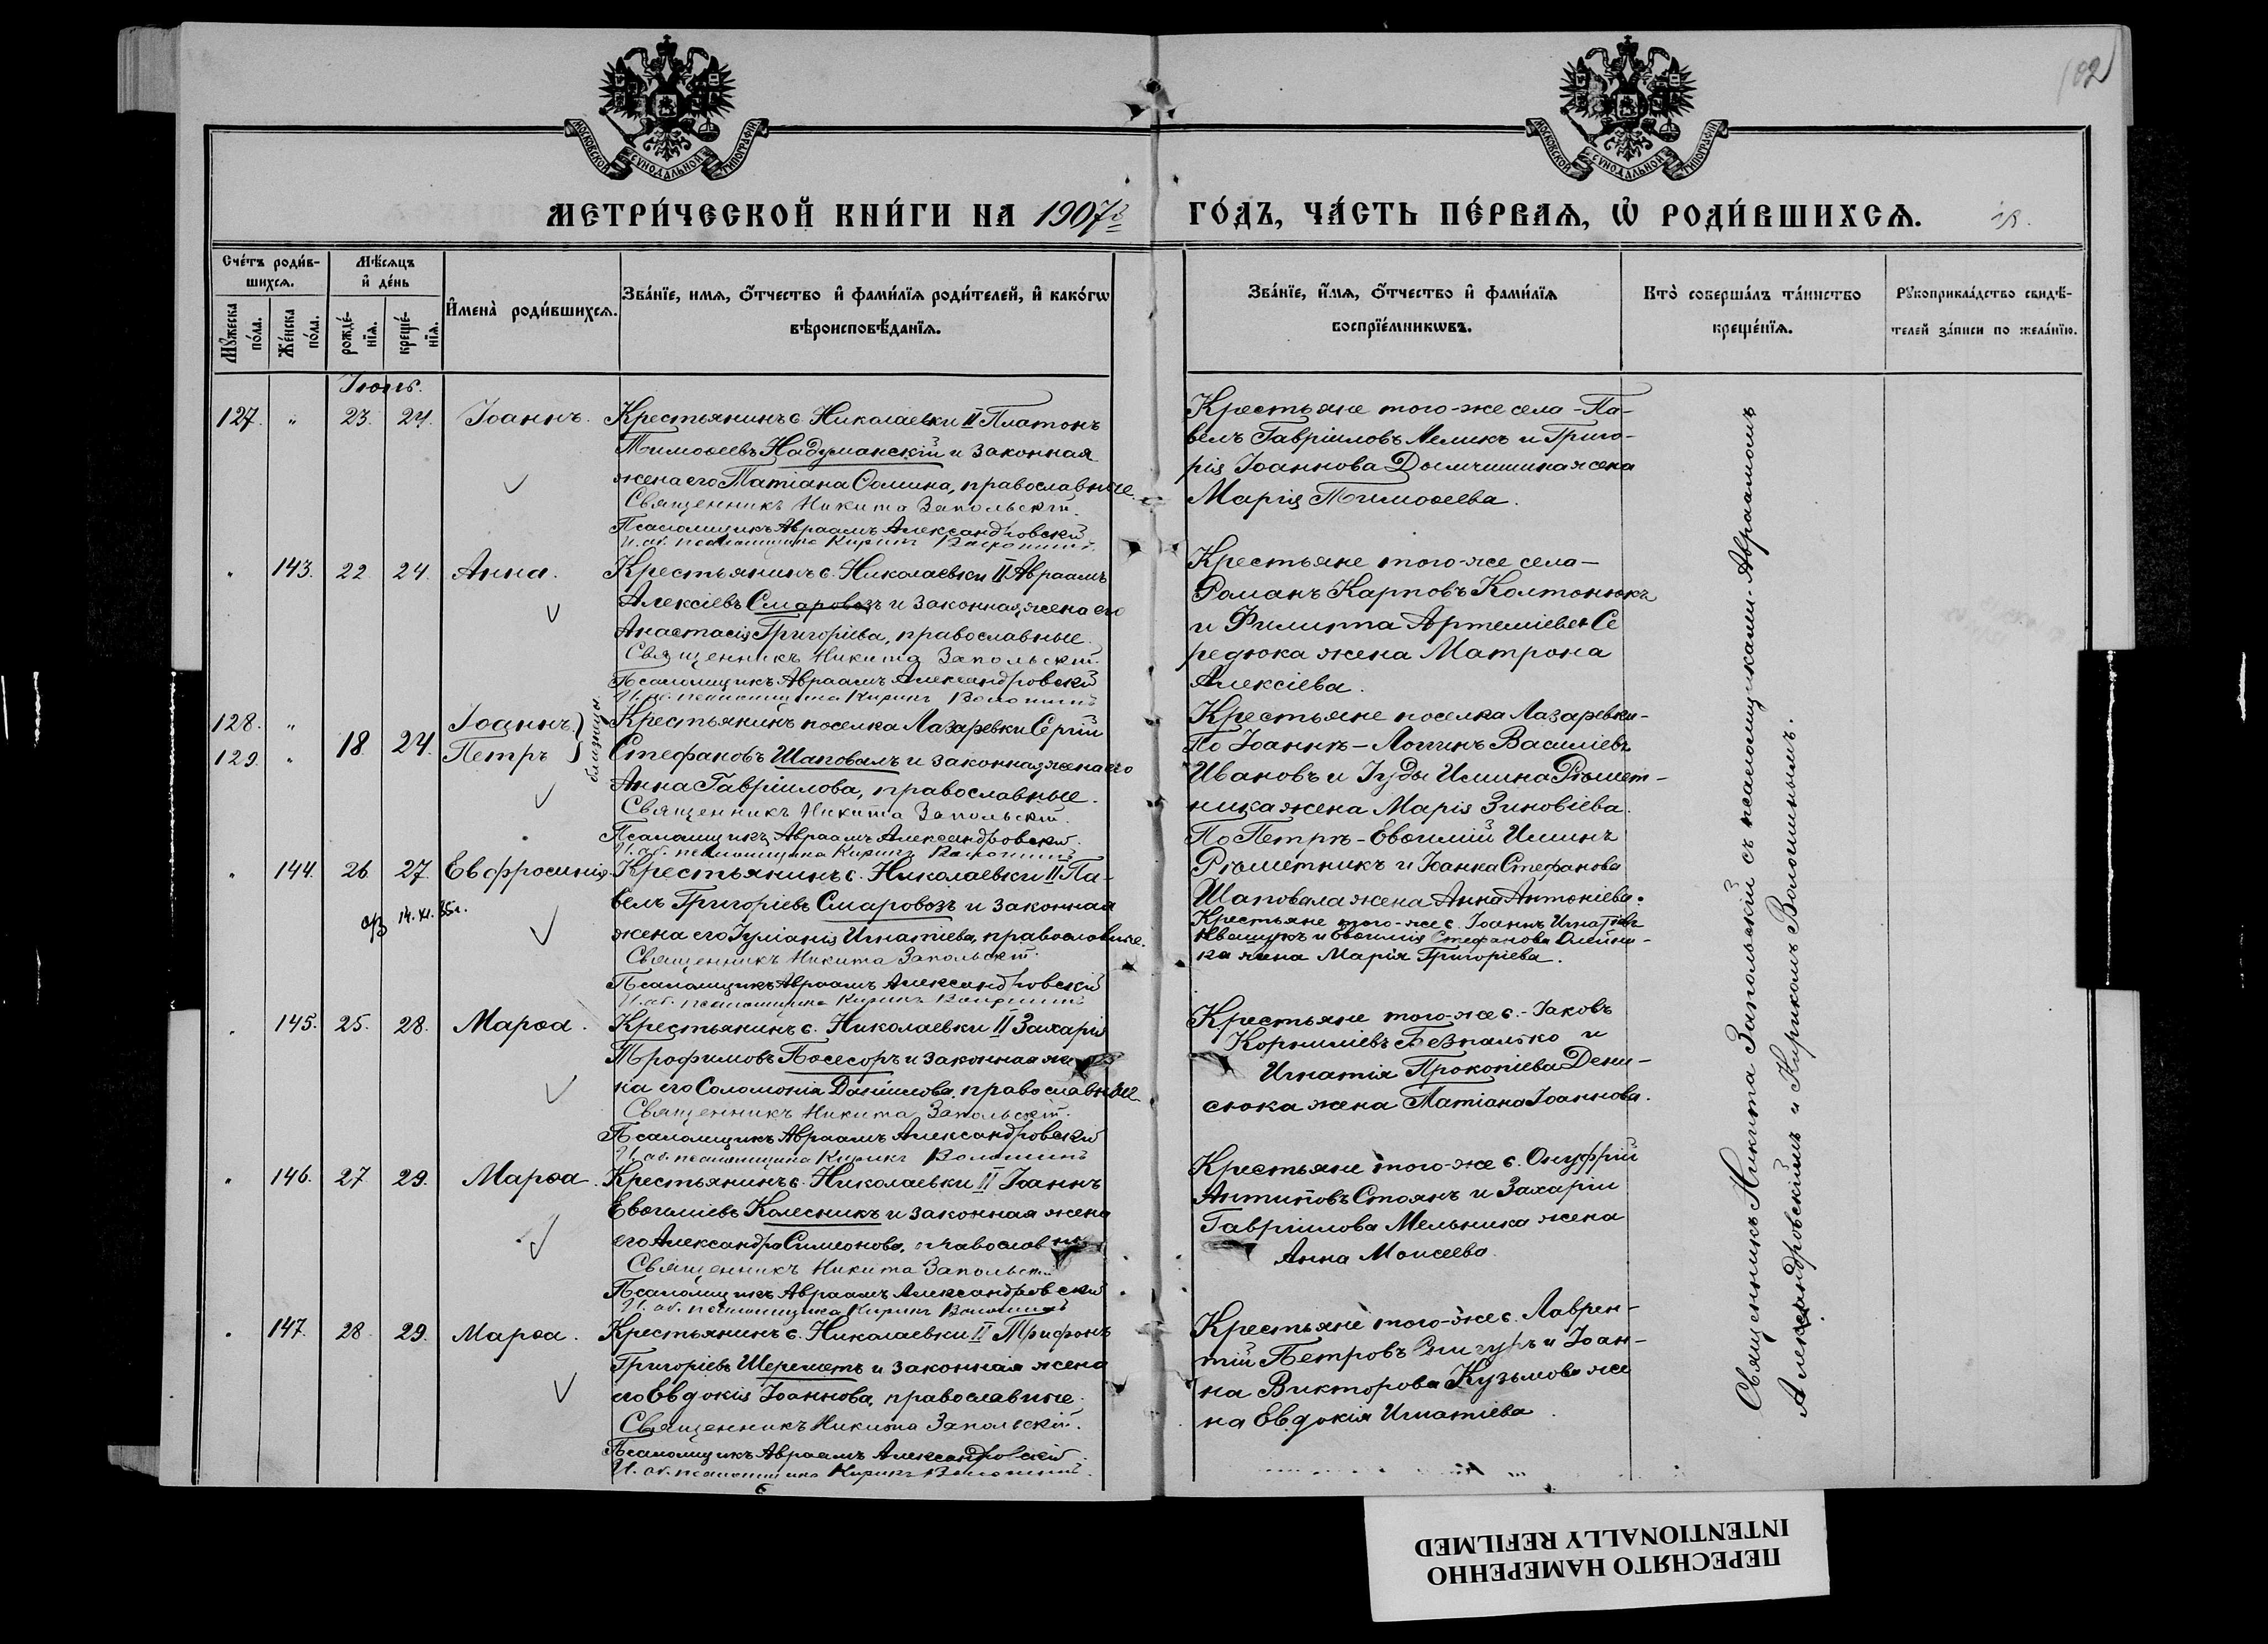 102
МОСКОВСКОЙ СѴНОДАЛЬНОЙ ТИПОГРАФІИ
МОСКОВСКОЙ СѴНОДАЛЬНОЙ ТИПОГРАФІИ
МЕТРИ́ЧЕСКОЙ КНИ́ГИ НА 1907й
ГО́ДЪ, ЧА́СТЬ ПЕ́РВАЯ, Ѡ РОДИ́ВШИХСЯ.
Сче́тъ роди́в-
шихся.
Мѣ́сяцъ
и де́нь
Мꙋ́жеска
по́ла.
Же́нска
по́ла.
рожде́-
нїя.
креще́-
нїя.
Имена̀ роди́вшихся.
Зва́нїе, имя, о́тчество и фами́лїя роди́телей, и како́гѡ
вѣроисповѣ́данїя.
Зва́нїе, и́мя, о́тчество и фами́лїя
воспрїе́мникѡвъ.
Кто̀ соверша́лъ та́инство
креще́нїя.
Рꙋкоприкла́дство свидѣ́-
телей за́писи по жела́нїю.
Іюнь.
127. " 23. 24. Іоаннъ. Крестьянинъ с. Николаевки II Платонъ
Тимоѳеевъ Надуманскій и законная
жена его Татіана Ѳомина, православные.
Священникъ Никита Запольскій.
Псаломщикъ Авраамъ Александровскій
И. об. псаломщика Кирикъ Волошинъ
Крестьяне того-же села - Па-
велъ Гавріиловъ Меликъ и Григо-
рія Іоаннова жена
Марія Тимоѳеева.
" 143. 22 24. Анна. Крестьянинъ с. Николаевки II Авраамъ
Алексіевъ Смаровозъ и законная жена его
Анастасія Григоріева, православные.
Священникъ Никита Запольскій.
Псаломщикъ Авраамъ Александровскій
И. об. псаломщика Кирикъ Волошинъ
Крестьяне того-же села -
Романъ Карповъ Колтонюкъ
и Филиппа Артеміева Се
редюка жена Матрона
Алексіева.
128. " Іоаннъ
129. " 18 24. Петръ близнецы
Крестьянинъ поселка Лазаревки Сергій
Стефановъ Шаповалъ и законная жена его
Анна Гавріилова, православные.
Священникъ Никита Запольскій.
Псаломщикъ Авраамъ Александровскій.
И. об. псаломщика Кирикъ Волошинъ
Крестьяне поселка Лазаревки -
По Іоаннѣ - Логгинъ Василіевъ
Ивановъ и Іуды Илиина Рѣшет-
ника жена Марія Зиновіева.
По Петрѣ - Евѳимій Илиинъ
Рѣшетникъ и Іоанна Стефанова
Шаповала жена Анна Антоніева.
" 144. 26 27. Евфросинія. Крестьянинъ с. Николаевки II Па-
велъ Григоріевъ Смаровозъ и законная
жена его Іуліанія Игнатіева, православные.
Священникъ Никита Запольскій.
Псаломщикъ Авраамъ Александровскій
И. об. псаломщика Кирикъ Волошинъ
14. XI. 35г.
Крестьяне того-же с. Іоаннъ Игнатіевъ
и Евѳимія Стефанова Олейни-
ка жена Марія Григоріева.
" 145. 25. 28. Марѳа. Крестьянинъ с. Николаевки II Захарія
Трофимовъ Посесоръ и законная же
на его Соломонія Даніилова, православные.
Священникъ Никита Запольскій.
Псаломщикъ Авраамъ Александровскій
И. об. псаломщика Кирикъ Волошинъ
Крестьяне того-же с. - Іаковъ
Корниліевъ Безпалько и
Игнатія Прокопіева Дени-
сюка жена Татіана Іоаннова.
" 146. 27 29. Марѳа. Крестьянинъ с. Николаевки II Іоаннъ
Евѳиміевъ Колесникъ и законная жена
его Александра Симеонова, православные
Священникъ Никита Запольскій
Псаломщикъ Авраамъ Александровскій
И. об. псаломщика Кирикъ Волошинъ
Крестьяне того-же с. Онуфрій
Антиповъ Стоянъ и Захаріи
Гавріилова Мельника жена
Анна Моисеева.
" 147. 28 29. Марѳа. Крестьянинъ с. Николаевки II Трифонъ
Григоріевъ Шереметъ и законная жена
его Евдокія Іоаннова, православные.
Священникъ Никита Запольскій.
Псаломщикъ Авраамъ Александровскій
И. об. псаломщика Кирикъ Волошинъ.
Крестьяне того-же с. Лаврен-
тій Петровъ Снигуръ и Іоан-
на Викторова Кузьмова же
на Евдокія Игнатіева.
Священникъ Никита Запольскій съ псаломщиками - Авраамомъ
Александровскимъ и Кирикомъ Волошинымъ.
ПЕРЕСНЯТО НАМЕРЕННО
INTENTIONALLY REFILMED